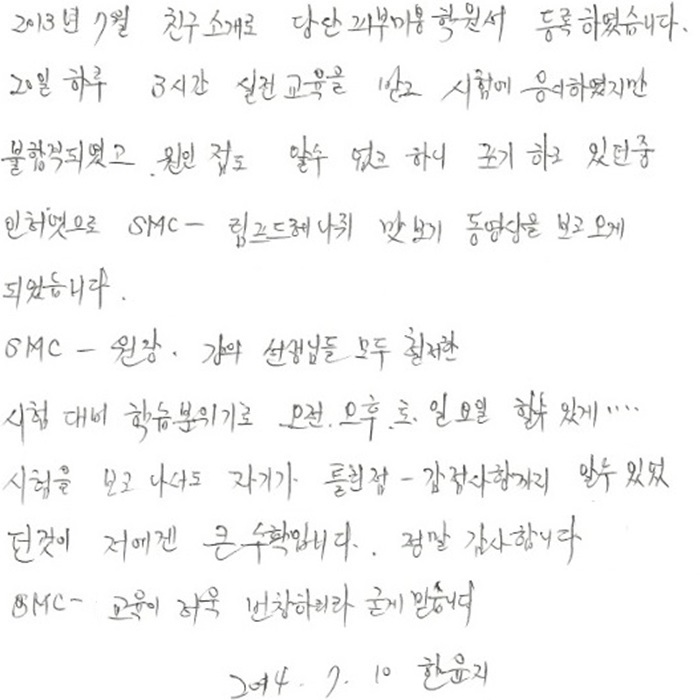 2013년 7월 친구소개로 당산피부미용학원서 등록하였습니다.
20일 하루 3시간 실전교육을 받고 시험에 응시하였지만
불합격되였고 원인 점도 알수 없고 하니 포기 하고 있던중
인허넷으로 SMC - 림프드레나쥐 맛보기 동영상을 보고 오게
되었습니다.
SMC - 원장. 강의 선생님들 모두 철저한
시험 대비 학습분위기로 오전. 오후. 토. 일요일 할수 있게 ....
시험을 보고 나서도 자기가 틀린점 - 감점사항까지 알수 있었
던것이 저에겐 큰 수확입니다. . 정말 감사합니다
SMC - 교육이 더욱 번창하리라 굳게 믿습니다
2014. 7. 10 한윤지